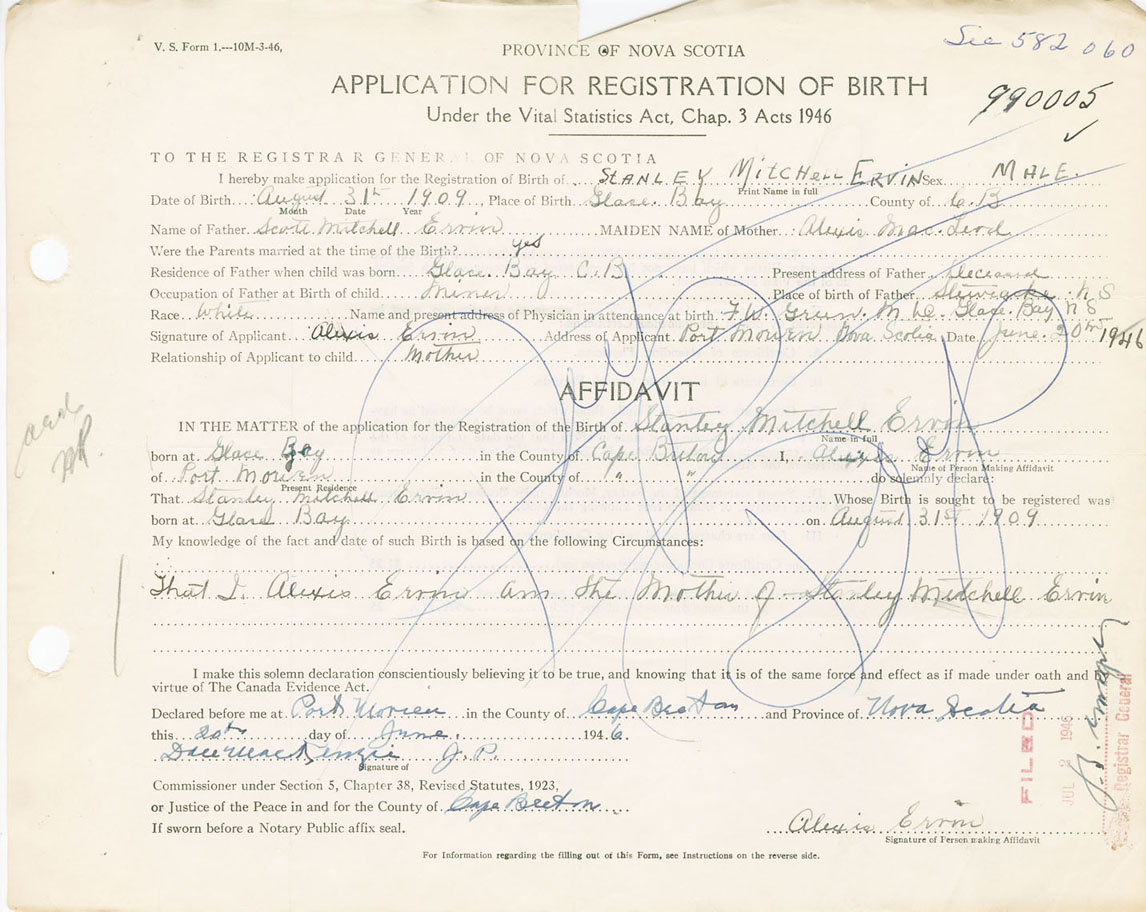 V. S. Form 1.---10M-3-46,
PROVINCE OF NOVA SCOTIA
See 582 060
APPLICATION FOR REGISTRATION OF BIRTH
990005
Under the Vital Statistics Act, Chap. 3 Acts 1946
TO THE REGISTRAR GENERAL OF NOVA SCOTIA
I hereby make application for the Registration of Birth of STANLEY MITCHELL ERVIN Sex MALE.
Print Name in full
Date of Birth August 31st 1909, Place of Birth Glace Bay County of C.B
Month Date Year
Name of Father Scott Mitchell Ervin MAIDEN NAME of Mother Alexis Mac Leod
Were the Parents married at the time of the Birth? yes
Residence of Father when child was born Glace Bay C.B Present address of Father Deceased
Occupation of Father at Birth of child Miner Place of birth of Father Stewiacke N S
Race White Name and present address of Physician in attendance at birth F.W. Green M.D. Glace Bay N S
Signature of Applicant Alexis Ervin Address of Applicant Port Mourn Nova Scotia Date June 20th 1946
Relationship of Applicant to child Mother
AFFIDAVIT
IN THE MATTER of the application for the Registration of the Birth of Stanley Mitchell Ervin
Name in full
born at Glace Bay in the County of Cape Breton I, Alexis Ervin
Name of Person Making Affidavit
of Port Mourn in the County of " " do solemnly declare:
Present Residence
That Stanley Mitchell Ervin Whose Birth is sought to be registered was
born at Glace Bay on August 31st 1909
My knowledge of the fact and date of such Birth is based on the following Circumstances:
That I. Alexis Ervin am the Mother of Stanley Mitchell Ervin
I make this solemn declaration conscientiously believing it to be true, and knowing that it is of the same force and effect as if made under oath and by
virtue of The Canada Evidence Act.
Declared before me at Port Morien in the County of Cape Breton and Province of Nova Scotia
this 20th day of June, 1946
MacKenzie J.P.
Signature of
Commissioner under Section 5, Chapter 38, Revised Statutes, 1923,
or Justice of the Peace in and for the County of Cape Breton
If sworn before a Notary Public affix seal.
Alexis Ervin
Signature of Person making Affidavit
For Information regarding the filling out of this Form, see Instructions on the reverse side.
FILED
JUL 2 1946
Registrar General